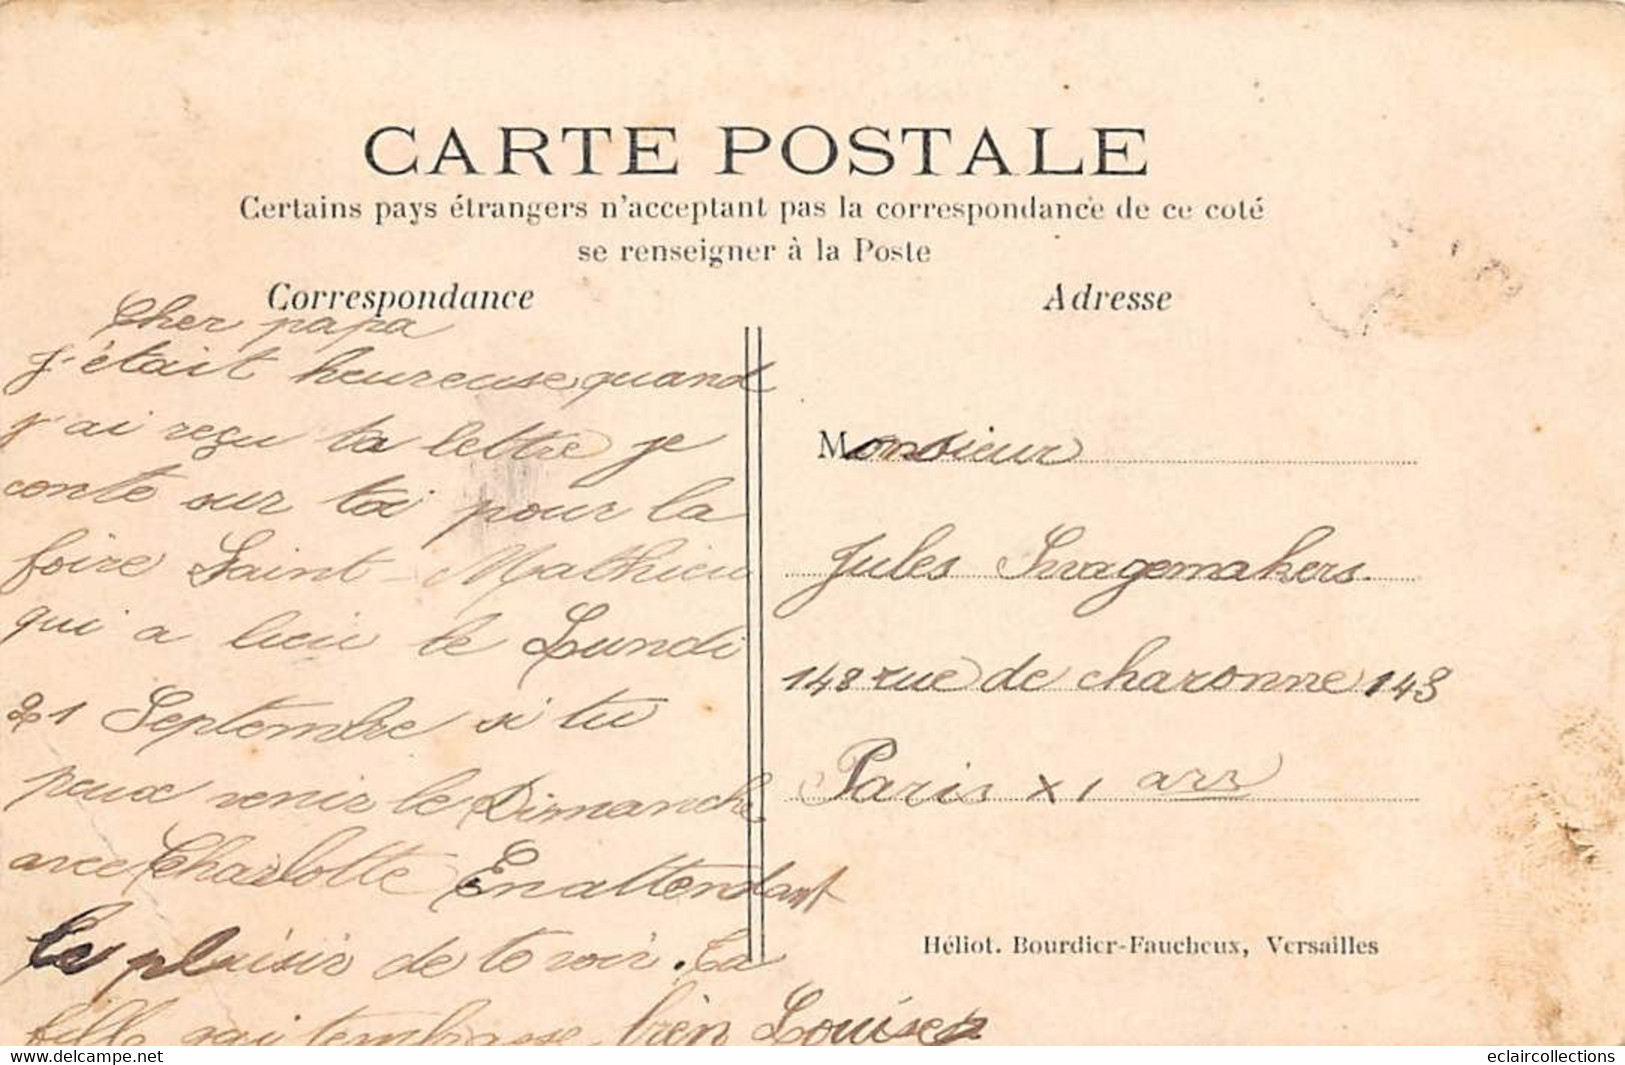 CARTE POSTALE
Certains pays étrangers n'acceptant pas la correspondance de ce coté
se renseigner à la Poste
Correspondance
Cher papa
j'était heureuse quand
j'ai reçu ta lettre je
conte sur toi pour la
foire Saint Mathieu
qui a lieu le Lundi
21 Septembre si tu
peux venir le Dimanche
avec Charlotte En attendant
le plaisir de te voir. Ta
fille qui t'embrasse bien Louise
Adresse
Monsieur
Jules Swagemakers.
148 rue de charonne 148
Paris XI arr
Héliot. Bourdier-Faucheux, Versailles
www.delcampe.net
eclaircollections